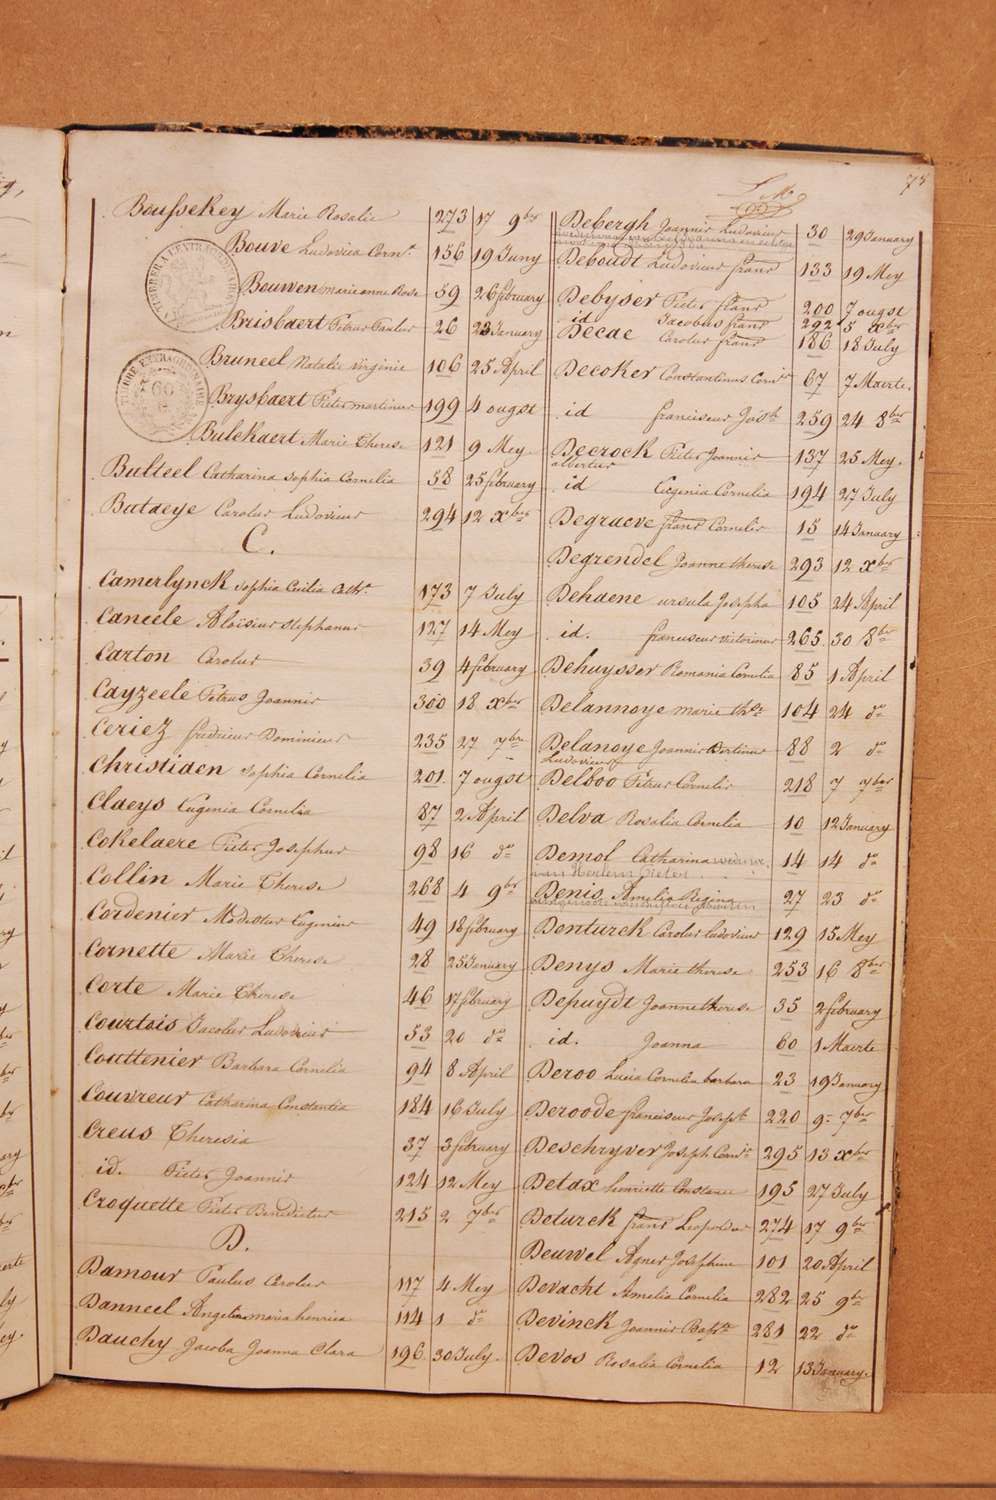 75
Boussekey Marie Rosalie 273 17 9ber
Bouve Ludovica Corn.a 156 19 Juny
Bouwen marie anne Rose 59 26 february
Brisbaert Petrus Paulus 26 23 January
Bruneel Natalie virginie 106 25 April
Brysbaert Pieter martinus 199 4 ougst
Bulckaert Marie Therese 121 9 Mey.
Bulteel Catharina Sophia Cornelia 58 25 february
Butaeye Carolus Ludovicus 294 12 xber
C.
Camerlynck Sophia Cecilia Cath.a 173 7 July
Caneele Aloïsius Stephanus 127 14 Mey
Carton Carolus 39 4 february
Cayzeele Petrus Joannis 300 18 xber
Ceriez fredricus Dominicus 235 27 7bre
Christiaen Sophia Cornelia 201. 7 ougst
Claeys Eugenia Cornelia 87 2 April
Cokelaere Pieter Josephus 98 16 do
Collin Marie Therese 268 4 9br
Cordenier Modestus Eugenius 49 18 february
Cornette Marie Therese 28 25 January
Corte Marie Therese 46 17 february
Courtois Jacobus Ludovicus 53 20 do
Couttenier Barbara Cornelia 94 8 April
Couvreur Catharina Constantia 184 16 July
Creus Theresia 37 3 february
id. Pieter Joannis 124 12 Mey
Croquette Pieter Benedictus 215 2 7ber
D.
Damour Paulus Carolus 117 4 Mey
Danneel Angelina maria henrica 114 1 do
Dauchy Jacoba Joanna Clara 196 30 July.
Debergh Joannis Ludovicus 30 29 January
Deboudt Ludovicus frans 133 19 Mey
Debyser Pieter frans 200 7 ougst
id Jacobus frans 292 5 xber
Decae Carolus frans 186 18 July
Decoker Constantinus Corn.is 67 7 Maerte.
id franciscus Jos.h 259 24 8ber
Decrock Pieter Joannis 137 25 Mey.
albertus
id Eugenia Cornelia 194 27 July
Degraeve frans Cornelis 15 14 January
Degrendel Joanne therese 293 12 xber
Dehaene ursula Josepha 105 24 April
id. franciscus victorinus 265 30 8br
Dehuysser Romania Cornelia 85 1 April
Delannoye marie Th.se 104 24 do
Delanoye Joannis Bertinus 88 2 do
Ludovicus
Delboo Petrus Cornelis 218 7 7ber
Delva Rosalia Cornelia 10 12 January
Demol Catharina weduwe 14 14 do
van Pieter
Denis Amelia Regina 27 23 do
Denturck Carolus Ludovicus 129 15 Mey
Denys Marie therese 253 16 8ber
Depuydt Joanne therese 35 2 february
id. Joanna 60 1 Maerte
Deroo Lucia Cornelia barbara 23 19 January
Deroode franciscus Joseph 220 9 7ber
Deschryver Joseph Corn.is 295 13 xber
Detax henriette Constance 195 27 July
Deturck frans Leopoldus 274 17 9br
Deuwel Agnes Josephine 101 20 April
Devacht Amelia Cornelia 282 25 9br
Devinck Joannis Bap.te 281 22 do
Devos Rosalia Cornelia 12 13 January.